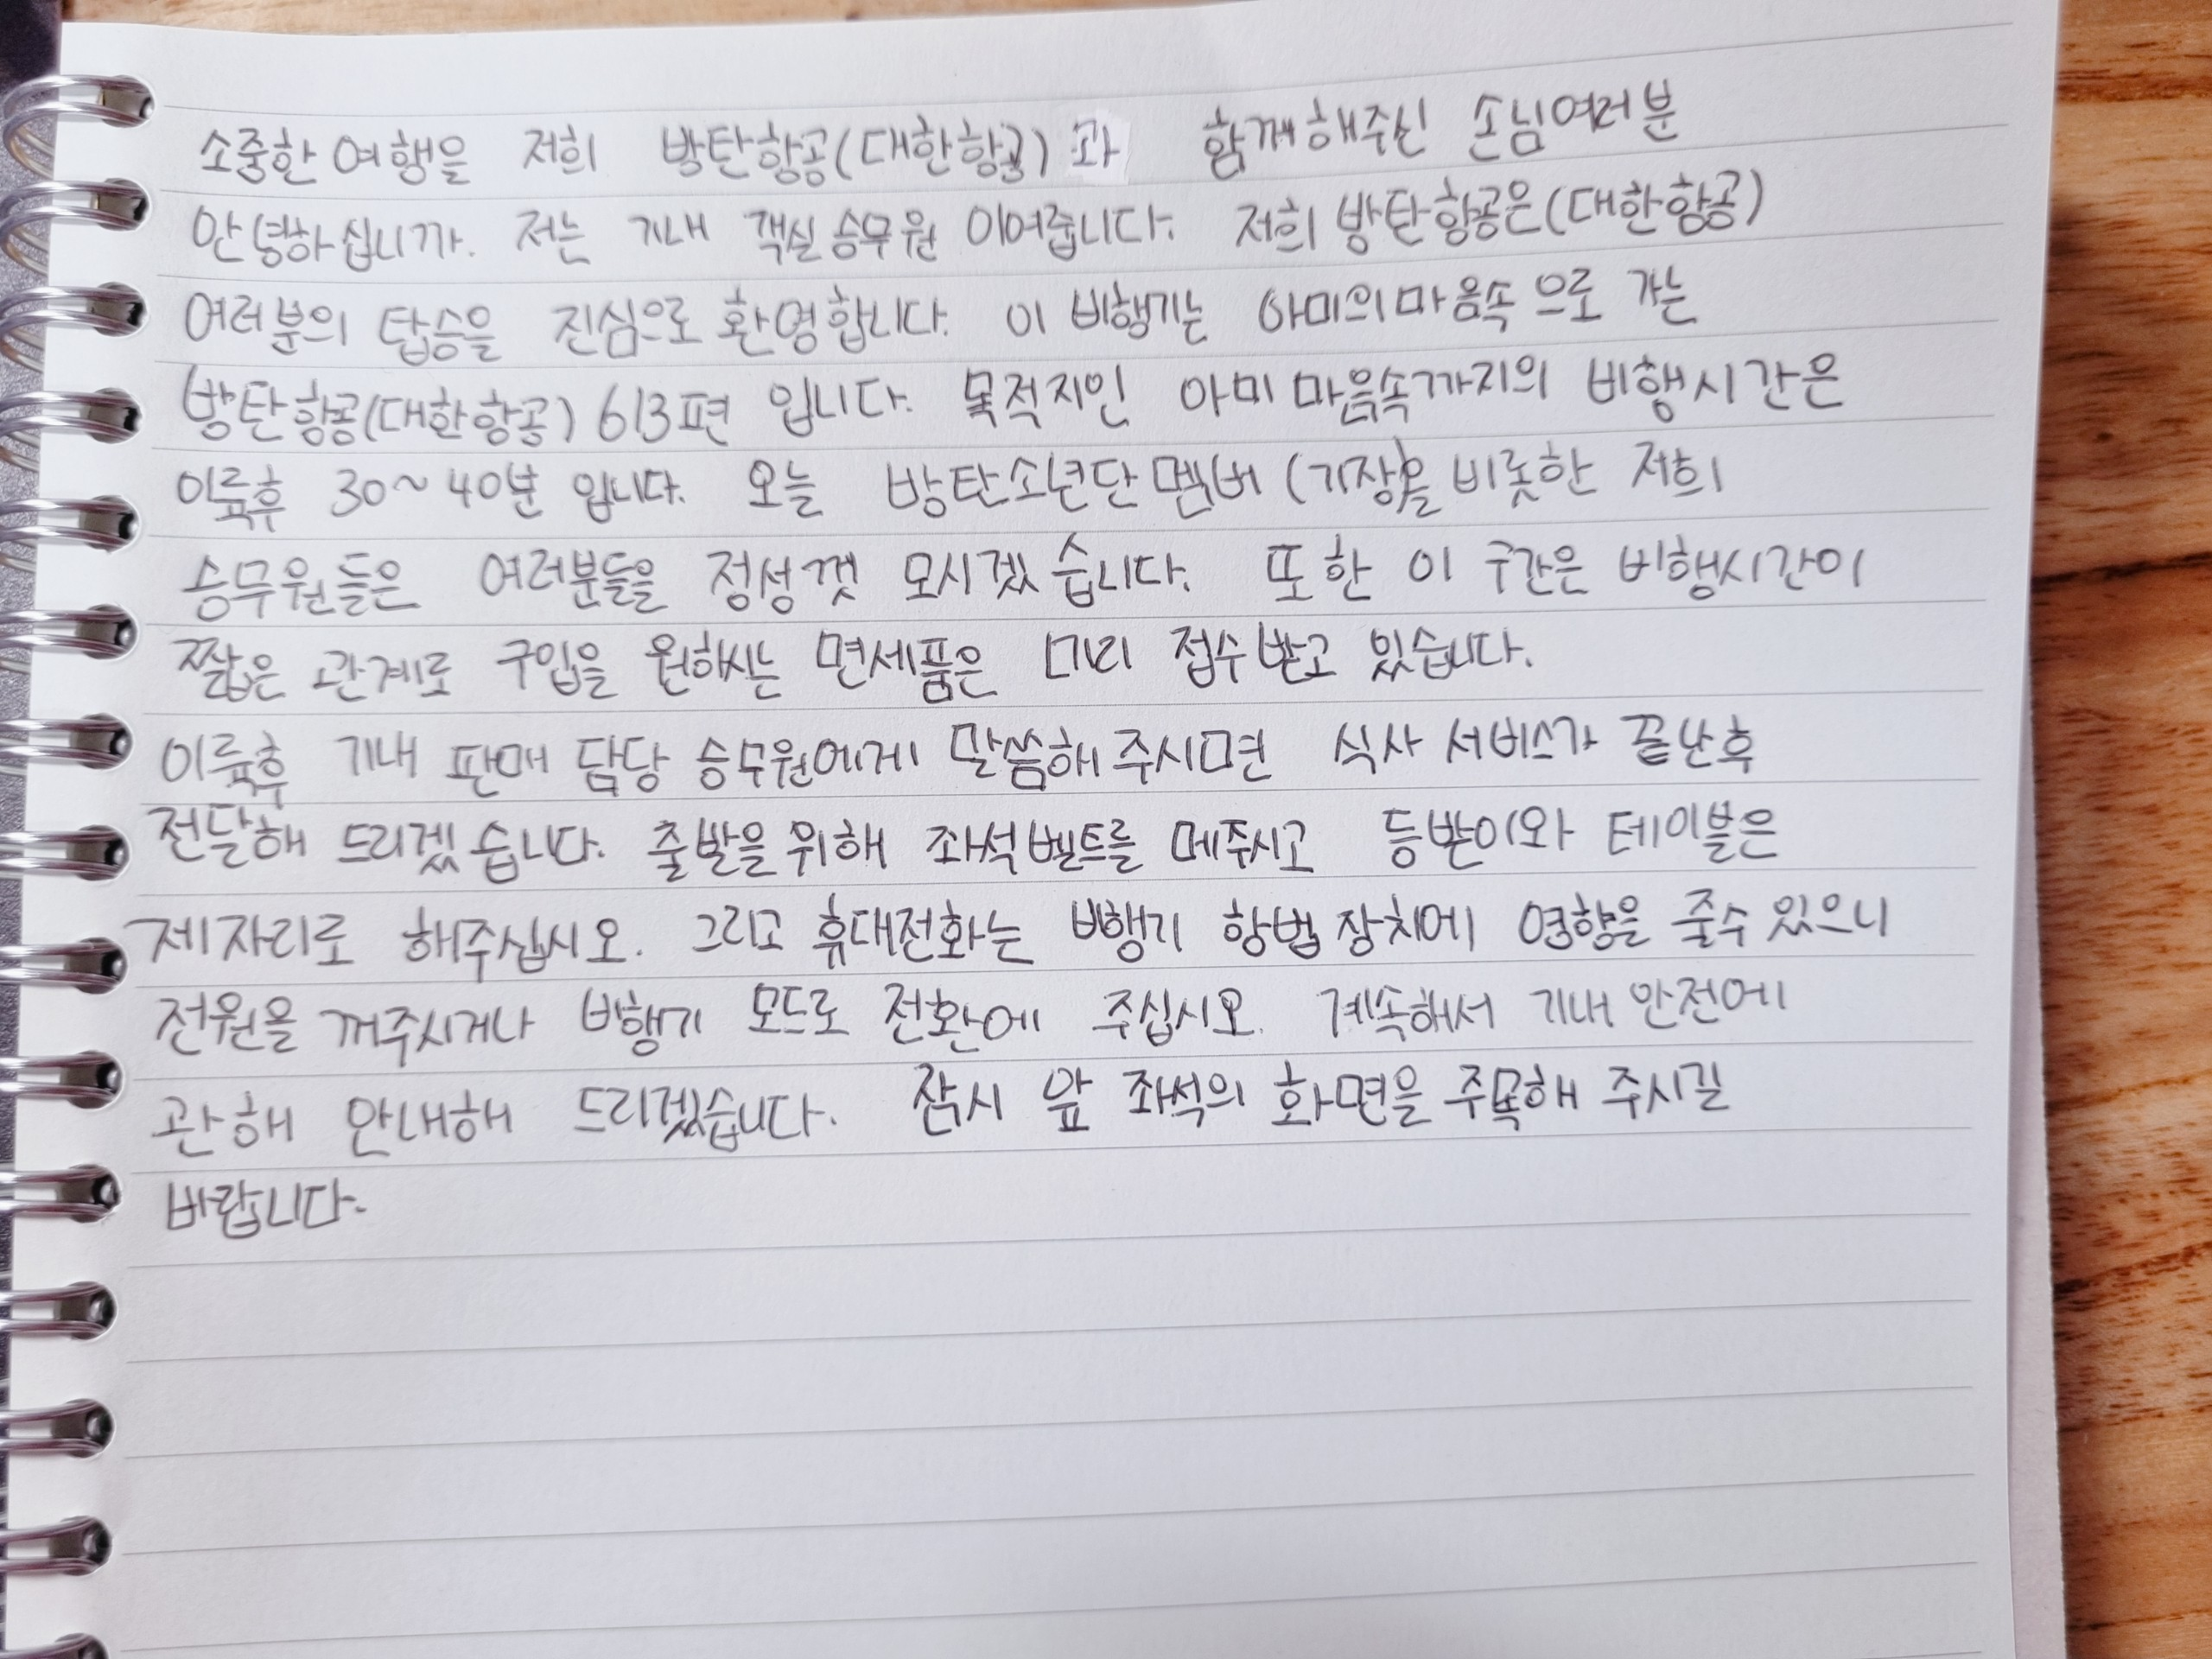 소중한 여행을 저희 방탄항공(대한항공)과 함께해주신 손님여러분
안녕하십니까. 저는 기내 객실승무원 이여줍니다. 저희 방탄항공은(대한항공)
여러분의 탑승을 진심으로 환영합니다. 이 비행기는 아미의마음속 으로 가는
방탄항공(대한항공) 613편 입니다. 목적지인 아미 마음속까지의 비행시간은
이륙후 30~40분 입니다. 오늘 방탄소년단 멤버 (기장)을 비롯한 저희
승무원들은 여러분들을 정성껏 모시겠습니다. 또한 이 구간은 비행시간이
짧은 관계로 구입을 원하시는 면세품은 미리 접수받고 있습니다.
이륙후 기내 판매 담당 승무원에게 말씀해주시면 식사 서비스가 끝난후
전달해 드리겠습니다. 출발을 위해 좌석벨트를 메주시고 등받이와 테이블은
제자리로 해주십시오. 그리고 휴대전화는 비행기 항법장치에 영향을 줄수 있으니
전원을 꺼주시거나 비행기 모드로 전환에 주십시오. 계속해서 기내 안전에
관해 안내해 드리겠습니다. 잠시 앞 좌석의 화면을 주목해 주시길
바랍니다.